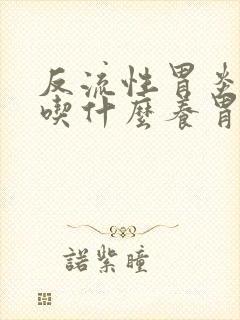 反流性胃炎
喫什麼養胃
諾紫瞳